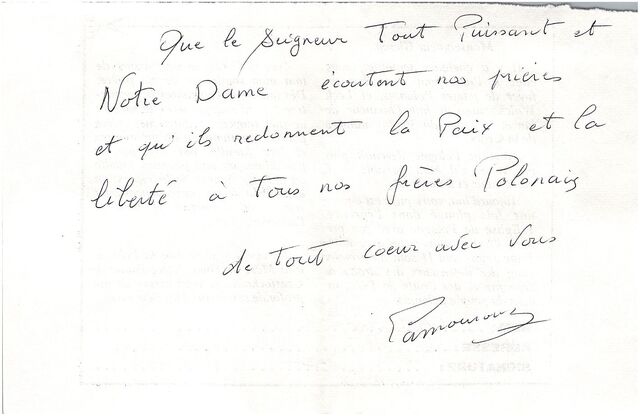 Que le Seigneur Tout Puissant et
Notre Dame écoutent nos prières
et qu'ils redonnent la Paix et la
liberté à tous nos frères Polonais
de tout coeur avec Vous